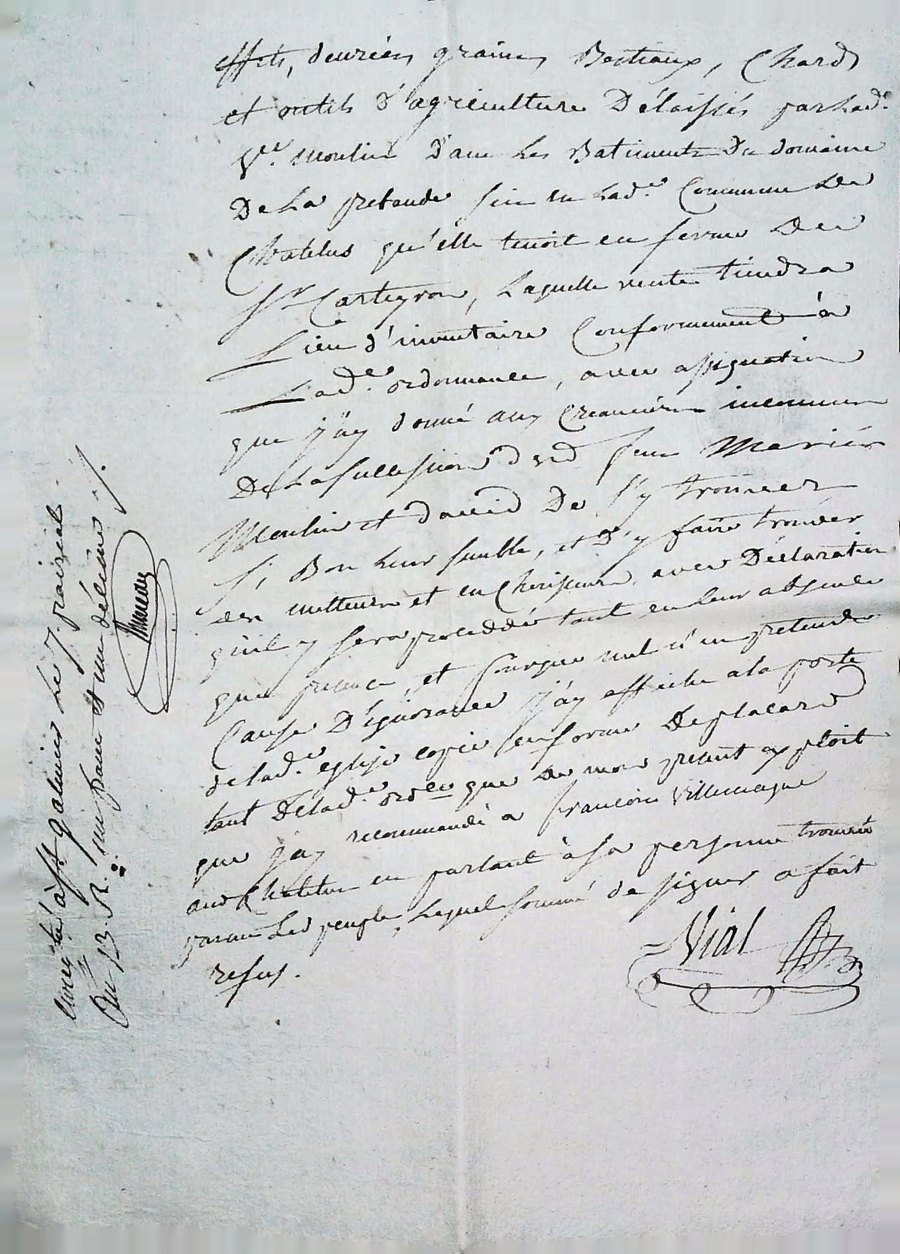 effets, denrées, grains, Bestiaux, Chards
et outils d'agriculture Délaissés par Lad.e
V.ve Moulin dans Les Batiments Du domaine
De La pretende sise en Lad.e Commune De
Chatelus qu'elle tenoit en ferme De
Sr Carteyron, Laquelle vente tiendra
Lieu d'inventaire Conformement à
Lad.e ordonnance, avec assignation
que j'ay donné aux Creanciers inconnus
De La succession dud feu Mariés
Moulin et david De s'y trouver
Si Bon Leur semble, et d'y faire trouver
des metteurs et encherisseurs avec Déclaration
qu'il y sera proceddé tant en Leur absence
que presence, et pourque nul n'en pretende
Cause D'ignorance j'ay affiché a la porte
de lad.e eglise copie en forme De placard
tant De lad.e ord.ce que De mon present exploit
que j'ay recommandé a francois Villemagne
dud Chatelus en parlant à Sa personne trouvé
parmi Led peuple, Lequel sommé de signer a fait
refus.
Vial
à st galmier Le 7
un franc